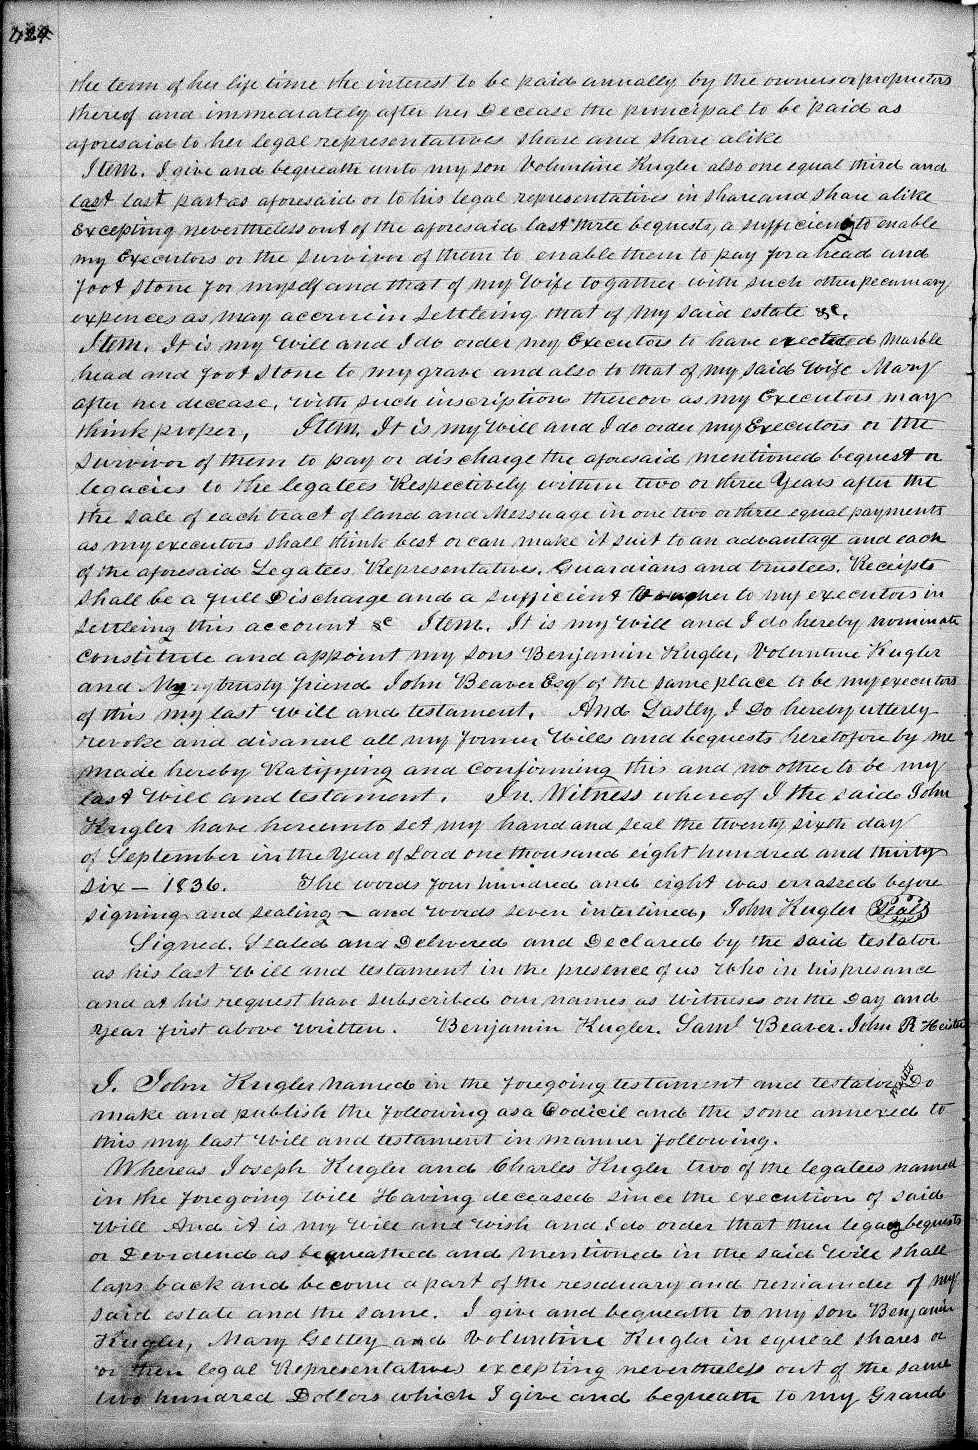 424
the term of her life time the interest to be paid annually by the owners or proprietors
thereof and immediately after her Decease the principal to be paid as
aforesaid to her legal representatives share and share alike
Item. I give and bequeath unto my son Voluntine Kugler also one equal third and
last last part as aforesaid or to his legal representatives in share and share alike
Excepting nevertheless out of the aforesaid last three bequests, a sufficiency to enable
my Executors or the survivor of them to enable them to pay for a head and
foot stone for myself and that of my Wife togather with such other pecuniary
expences as may accrue in settleing that of my said estate &c.
Item. It is my Will and I do order my Executors to have erected marble
head and foot stone to my grave and also to that of my said Wife Mary
after her decease, with such inscription thereon as my Executors may
think proper, Item. It is my Will and I do order my Executors or the
survivor of them to pay or discharge the aforesaid mentioned bequest or
legacies to the legatees Respectively within two or three Years after the
the sale of each tract of land and Messuage in one two or three equal payments
as my executors shall think best or can make it suit to an advantage and each
of the aforesaid Legatees, Representatives, Guardians and trustees, Receipts
shall be a full Discharge and a sufficient Voucher to my executors in
settleing this account &c Item. It is my Will and I do hereby nominate
constitute and appoint my sons Benjamin Kugler, Voluntine Kugler
and My trusty friend John Beaver Esq of the same place to be my executors
of this my last will and testament, And Lastly I Do hereby utterly
revoke and disanul all my former Wills and bequests heretofore by me
made hereby Ratifying and Confirming this and no other to be my
last Will and testament. In Witness whereof I the said John
Kugler have hereunto set my hand and seal the twenty sixth day
of September in the Year of Lord one thousand eight hundred and thirty
six — 1836. The words four hundred and eight was errassed before
signing and sealing — and words seven interlined, John Kugler Seal
Signed. Sealed and Delivered and Declared by the said testator
as his last Will and testament in the presence of us Who in his presand
and at his request have subscribed our names as Witneses on the Day and
Year first above written. Benjamin Kugler. Saml Beaver. John R Heister

I. John Kugler named in the foregoing testament and testator Do
make and publish the following as a Codicil and the some annexed to
this my last Will and testament in manner following.
Whereas Joseph Kugler and Charles Kugler two of the legatees named
in the foregoing Will Having deceased since the execution of said
Will And it is my Will and Wish and I do order that their legacy bequests
or Devidend as bequeathed and mentioned in the said Will shall
laps back and become a part of the residuary and remainder of my
said estate and the same. I give and bequeath to my son Benjamin
Kugler, Mary Getley and Voluntine Kugler in equeal shares or
or their legal Representatives excepting nevertheless out of the same
two hundred Dollors which I give and bequeath to my Grand